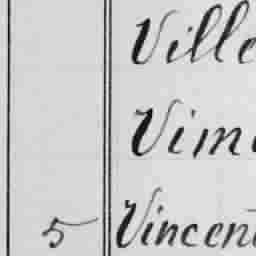 Ville
Vim
5 Vincent